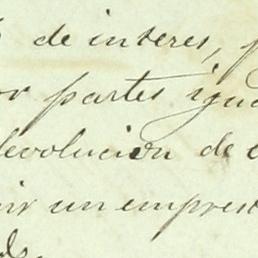 de interes,
or partes igua
devolucion de
un emprest